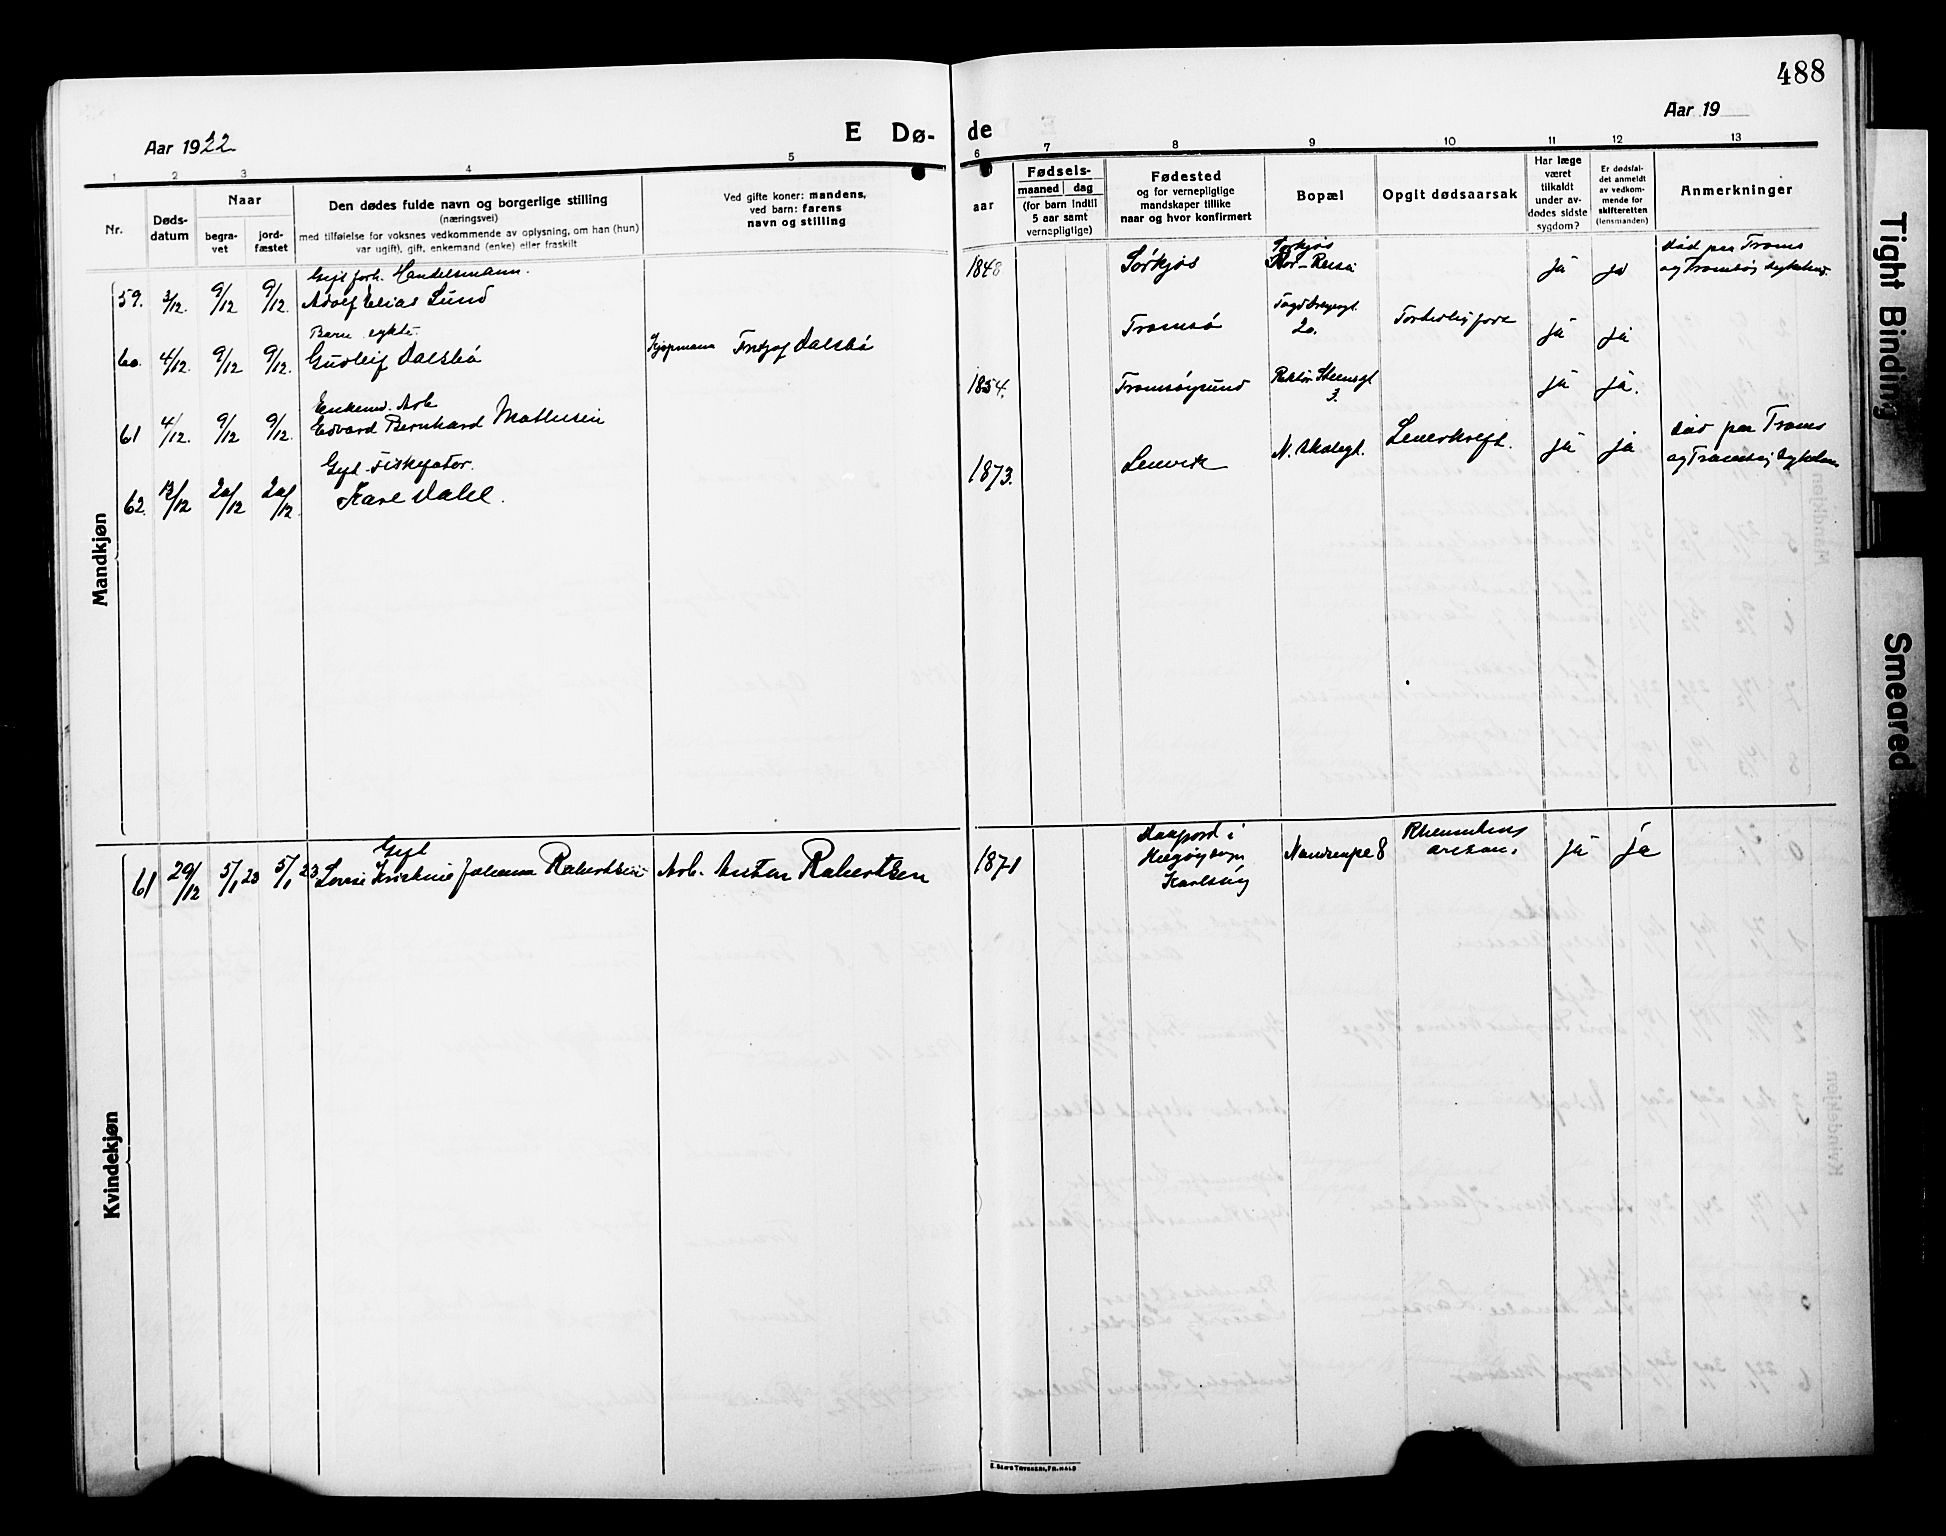 488
Aar 1922
E Dø-
de
Aar 19
1 2 3 4 5 6 7 8 9 10 11 12 13
Nr.
Døds-
datum
Naar
begra-
vet
jord-
fæstet
Den dødes fulde navn og borgerlige stilling
(næringsvei)
med tilføielse for voksnes vedkommende av oplysning, om han (hun)
var ugift), gift, enkemand (enke) eller fraskilt
Ved gifte koner: mandens,
ved barn: farens
navn og stilling
aar
Fødsels-
maaned dag
(for barn indtil
5 aar samt
vernepligtige)
Fødested
og for vernepligtige
mandskaper tillike
naar og hvor konfirmert
Bopæl
Opgit dødsaarsak
Har læge
været
tilkaldt
under av-
dødes sidste
sygdom?
Er dødsfal-
det anmeldt
av vedkom-
mende for
skifteretten
(lensmanden)
Anmerkninger
Mandkjøn
Gift forh. Handelsmann.
59. 3/12. 9/12 9/12. Adolf Elias Lund
1848 Sørkjos
Sørkjos
Nor-Reisa
ja ja
død paa Troms
og Tromsøs sykehus.
Barn
60. 4/12. 9/12 9/12. Gudleif Dalsbø
Kjøpmann Fritjof Dalsbø
Tromsø
20.
ja ja
Enkem. Arb
61 4/12. 9/12 9/12. Edvard Bernhard Mathisen
1854. Tromsøysund
Rektor Steensgt
3.
ja ja.
Gift Fisker
62. 12/12 20/12 20/12 Karl Dahl.
1873. Lenvik N. Skolegt. Leverkreft. ja ja
død paa Troms
og Tromsøs sykehus
Kvindekjøn
Gift
61 29/12 5/1 23 5/1 23 Lovise Kristine Johanna Robertsen
Arb. Anton Robertsen
1871
i
Helgøy sogn
Karlsøy
8
ja ja
E. Sem's Trykkeri, Fr.hald
Tight Binding
Smeared